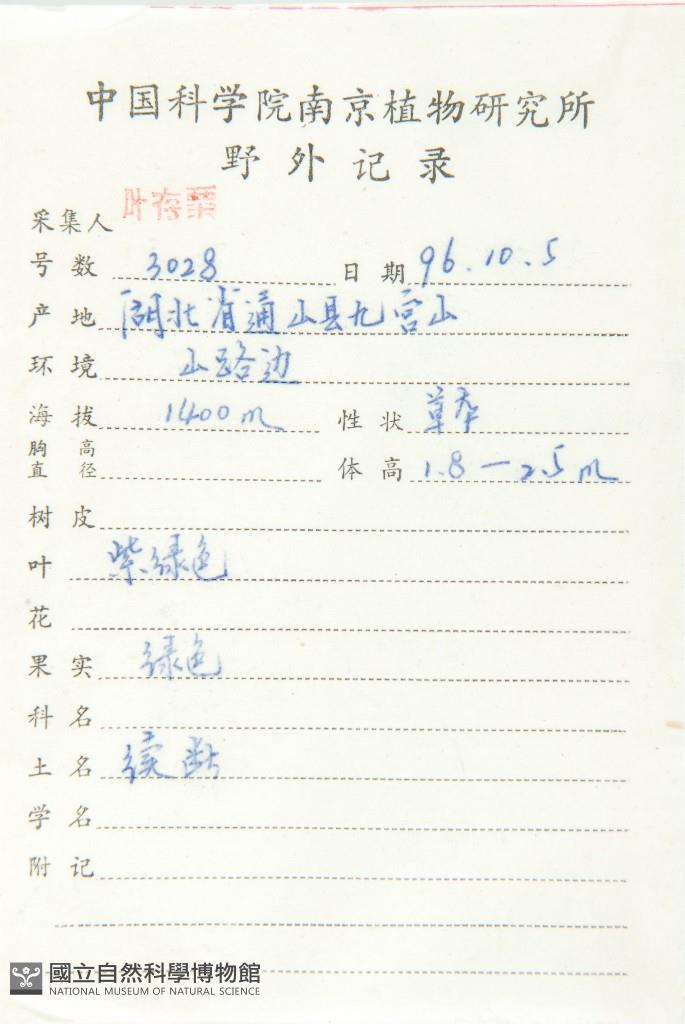 中国科学院南京植物研究所
野外记录
采集人 叶存粟
号数 3028 日期 96.10.5
产地 湖北省通山县九宫山
环境 山路边
海拔 1400m 性状 草本
胸高直径 体高 1.8—2.5m
树皮
叶 紫绿色
花
果实 绿色
科名
土名 续断
学名
附记
國立自然科學博物館
NATIONAL MUSEUM OF NATURAL SCIENCE